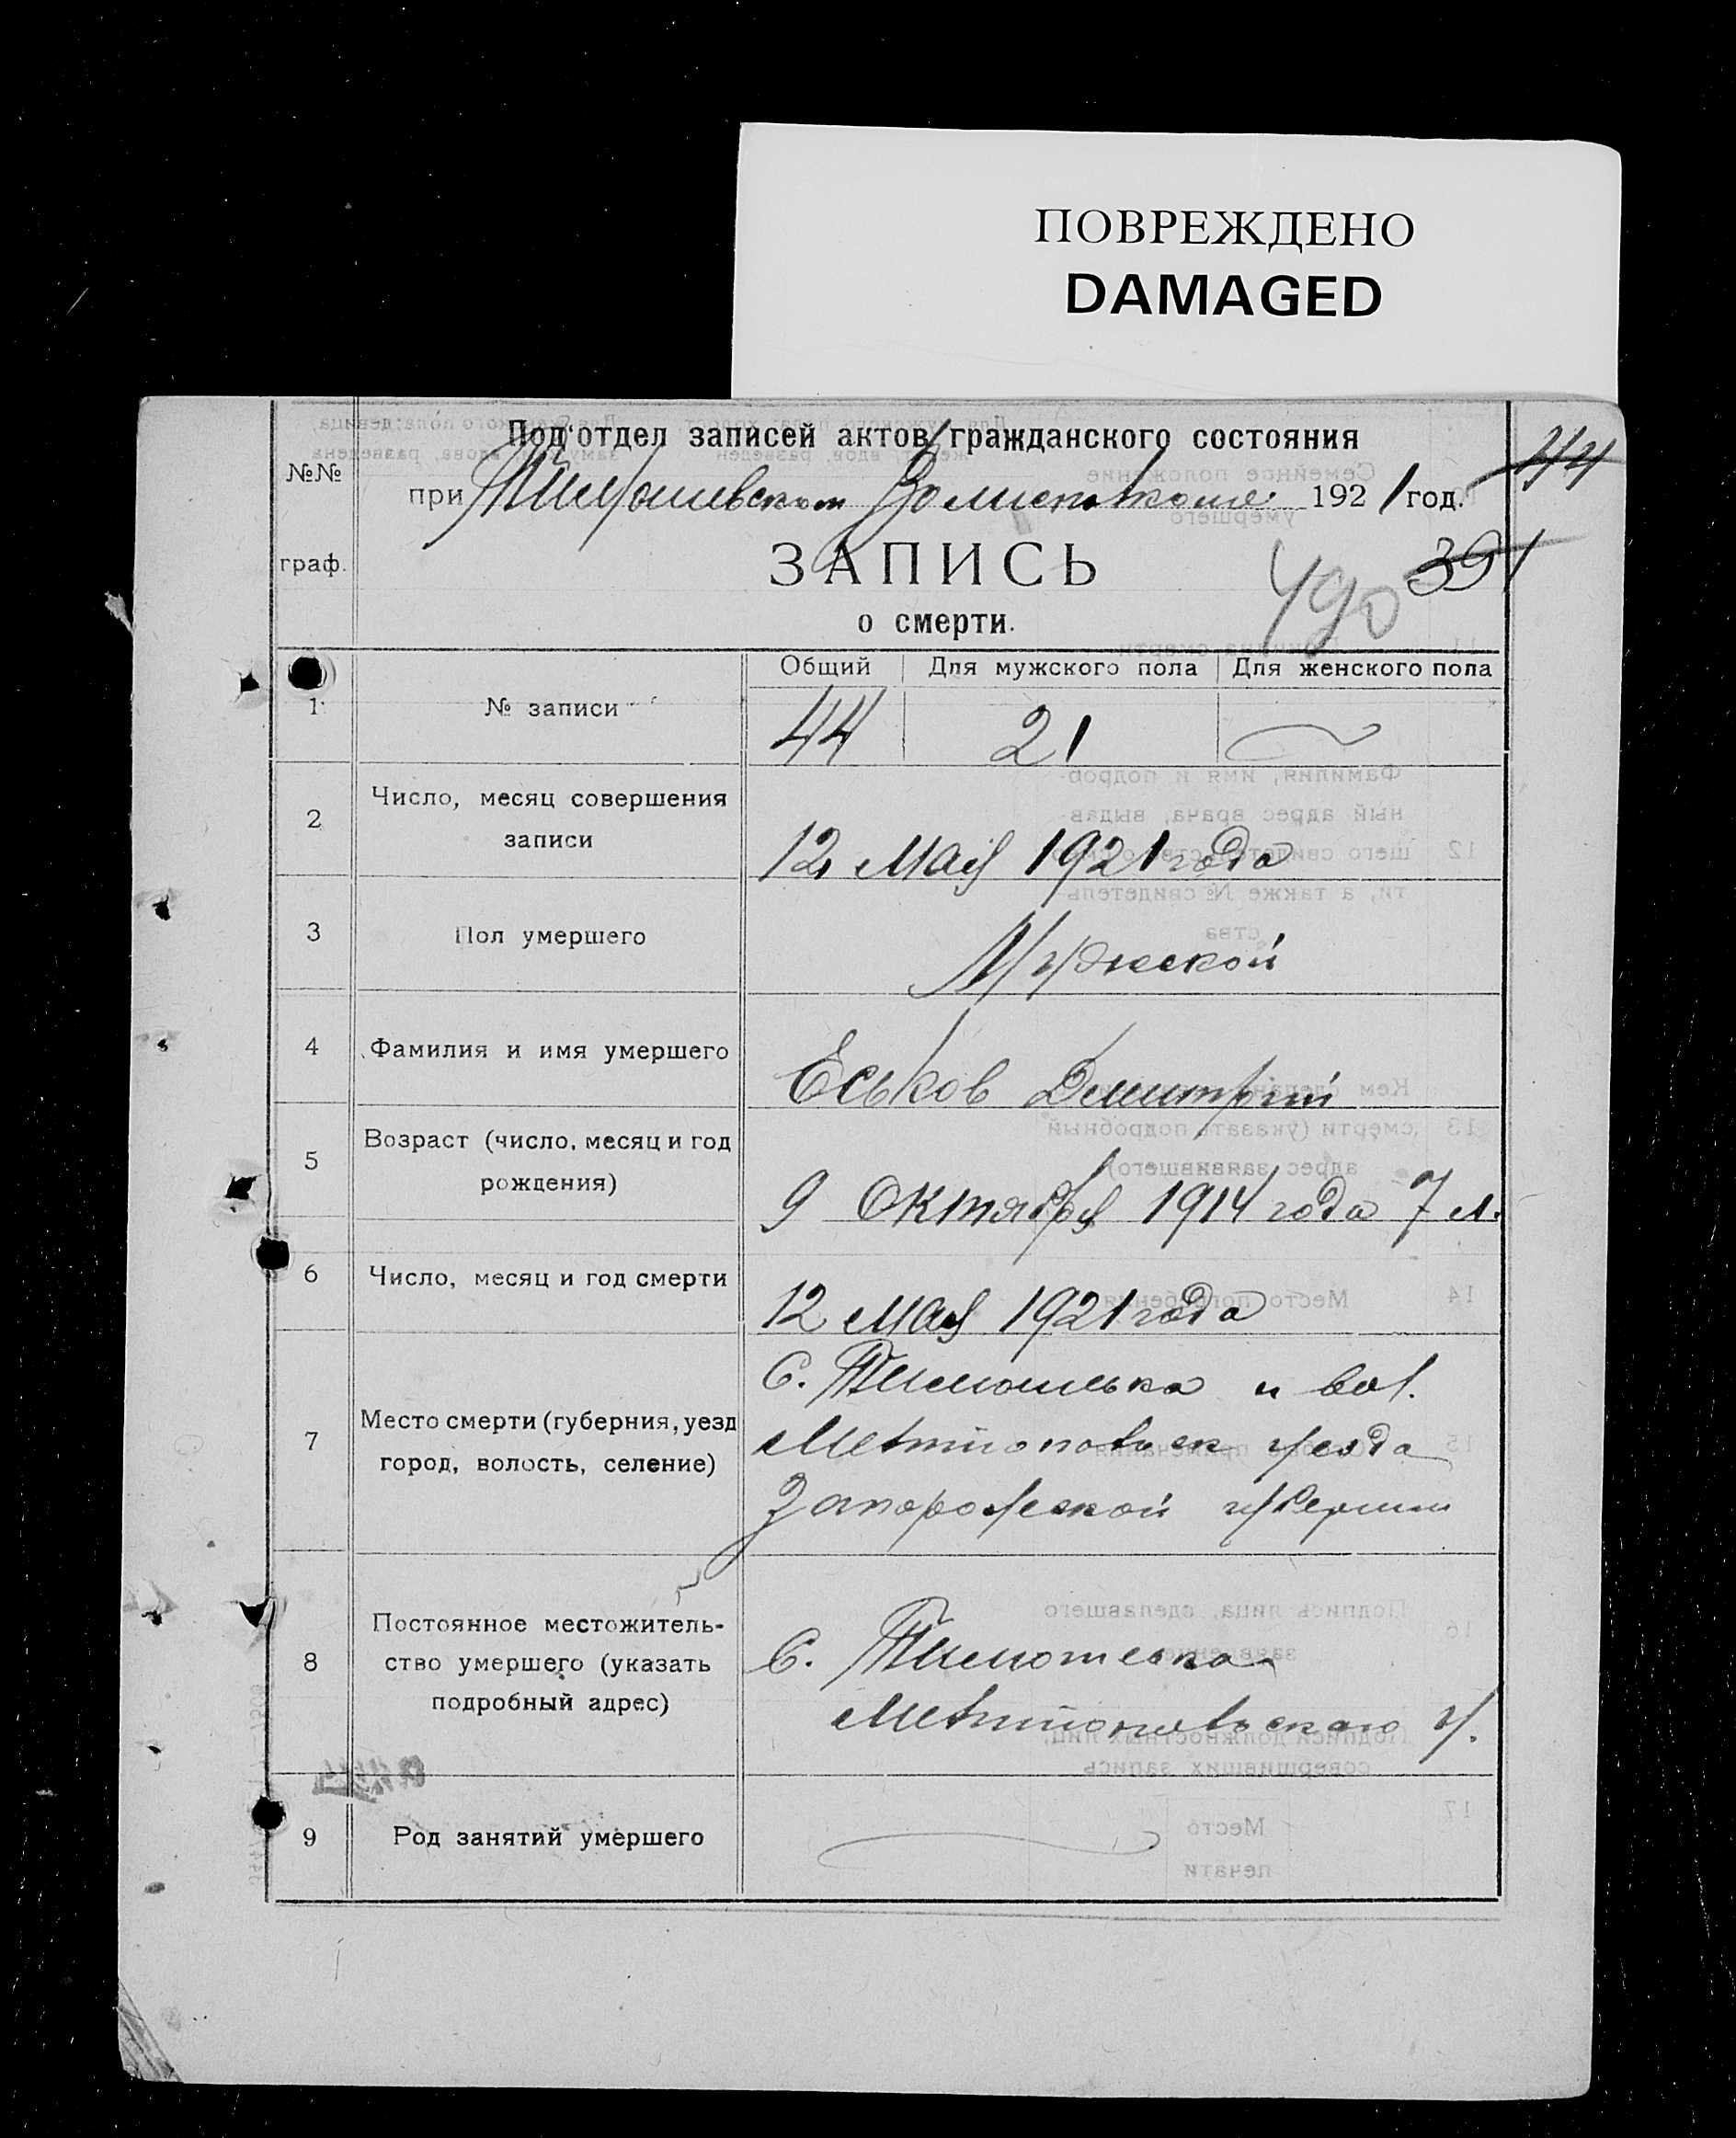 ПОВРЕЖДЕНО
DAMAGED
Под'отдел записей актов гражданского состояния
№№
при Тимошевском Волисполкоме 1921 год.
44
граф.
ЗАПИСЬ
391
490
о смерти.
Общий Для мужского пола Для женского пола
1 № записи 44 21
2 Число, месяц совершения
записи
12 Мая 1921 года
3 Пол умершего Мужской
4 Фамилия и имя умершего Еськов Димитрий
5 Возраст (число, месяц и год
рождения)
9 Октября 1914 года 7 л.
6 Число, месяц и год смерти
12 Мая 1921 года
7 Место смерти (губерния, уезд
город, волость, селение)
С. Тимошевка и вол.
Мелитопольск уезда
Запорожской губернии
8 Постоянное местожитель-
ство умершего (указать
подробный адрес)
С. Тимошевка
Мелитопольского у.
9 Род занятий умершего